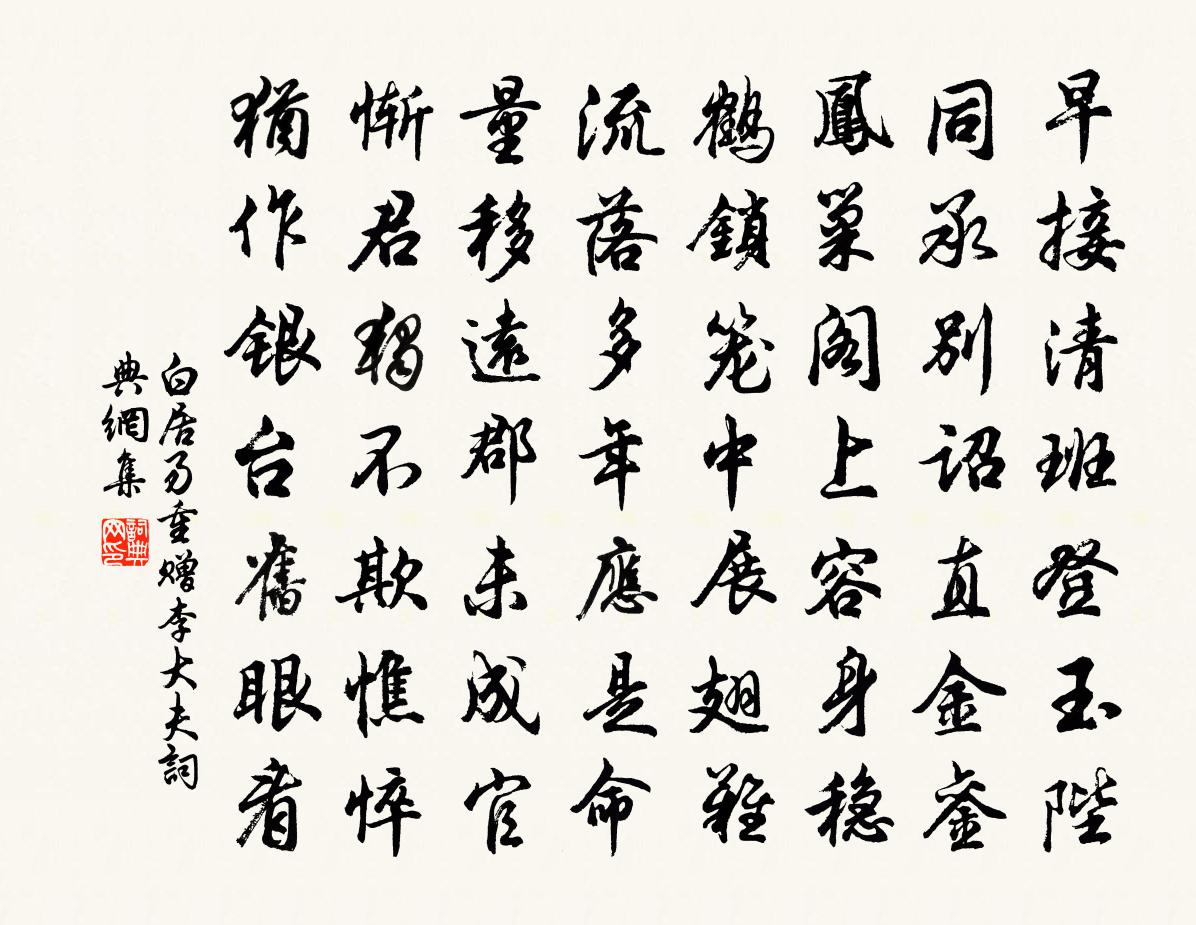 早接清班登玉陛
同承別詔直金銮
鳳巢阁上容身穏
鶴鎖笼中展翅難
流落多年應是命
量移遠郡未成官
慚君独不欺憔悴
猶作銀台舊眼看
白居易重赠李大夫詞
典網集
詞典网印